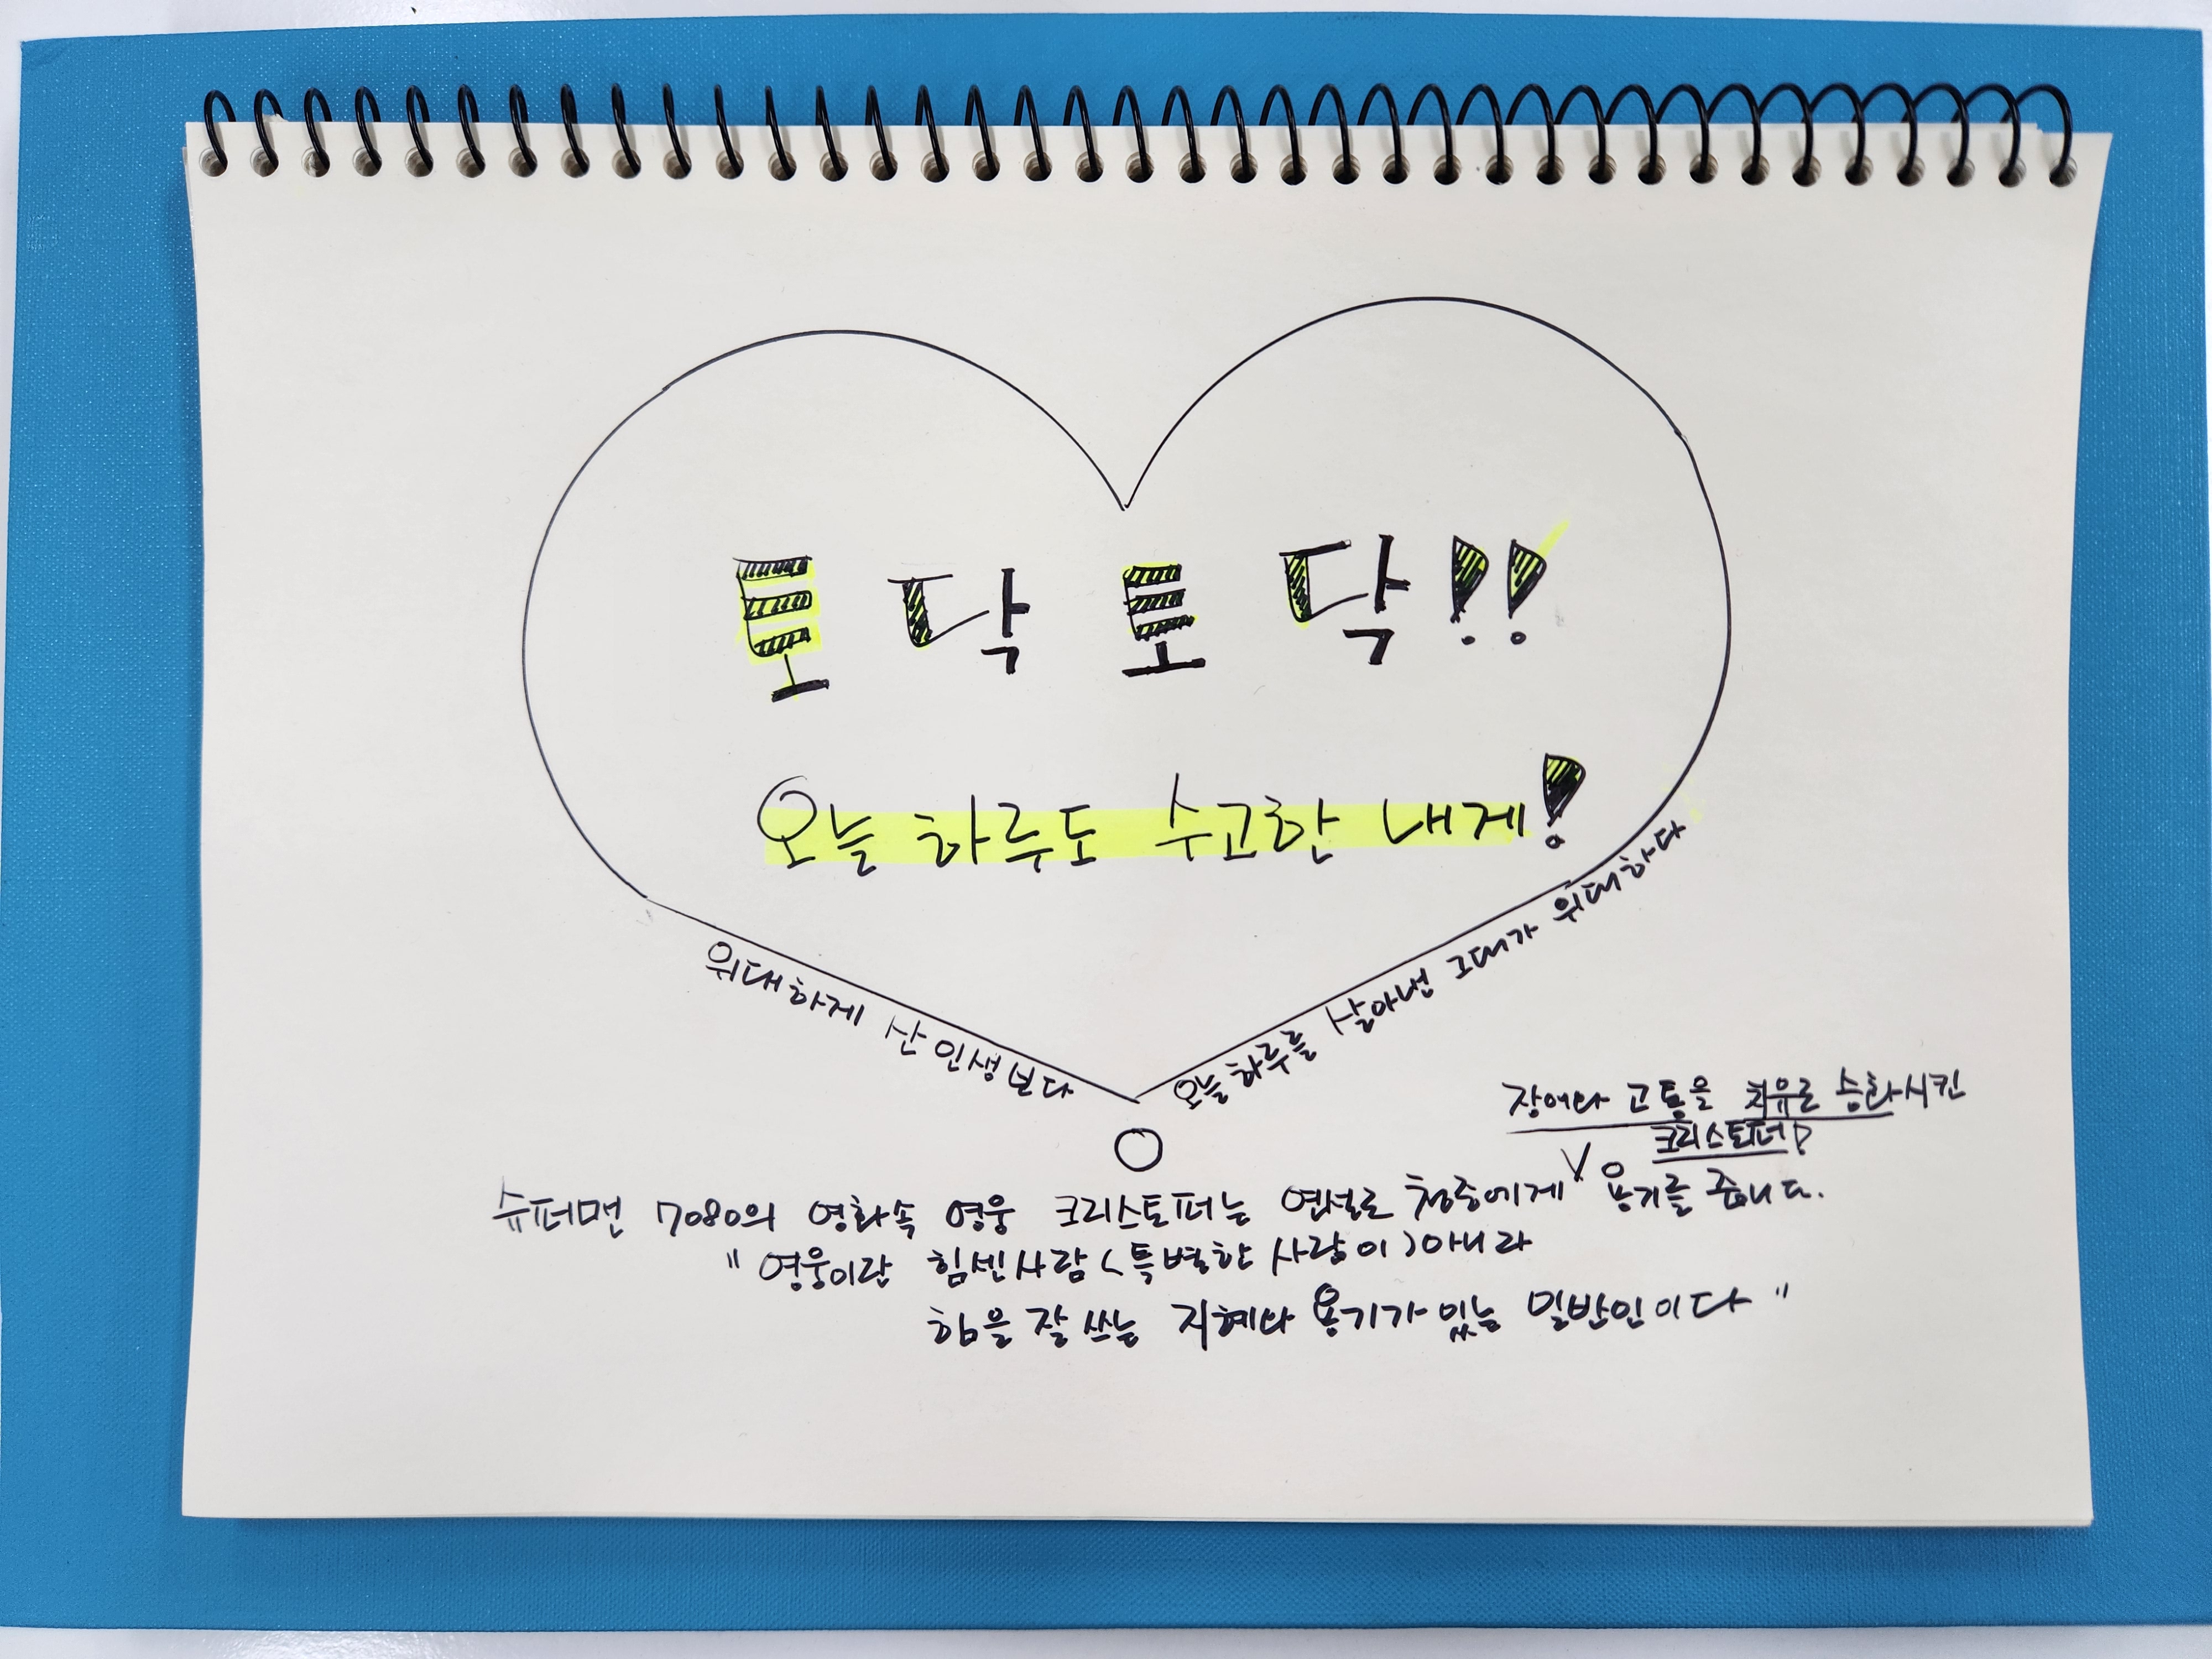 토닥토닥!!
오늘 하루도 수고한 내게!
위대하게 산 인생보다
오늘 하루를 살아낸 그대가 위대하다
장애와 고통을 치유로 승화시킨
크리스토퍼!
슈퍼맨 7080의 영화속 영웅 크리스토퍼는 연설로 청중에게 용기를 줍니다.
"영웅이란 힘센사람(특별한 사람이)아니라
힘을 잘 쓰는 지혜와 용기가 있는 일반인이다"